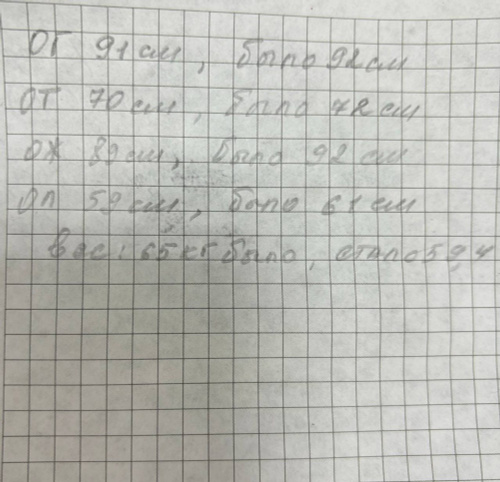 ОГ 91 см, было 92 см
ОТ 70 см, было 72 см
ОЖ 89 см, было 92 см
ОП 59 см, было 61 см
вес: 65 кг было, стало 59,4